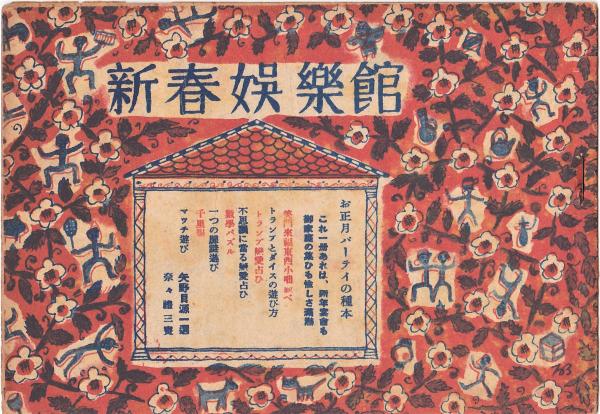 新春娯樂館
お正月パーティの種本
これ一册あれば、新年宴會も
御家庭の集ひも愉しさ滿點
笑門來福東西小咄
トランプとダイスの遊び方
トランプ戀愛占ひ
不思議に當る戀愛占ひ
數學パズル
一つの謎遊び
千里眼
マッチ遊び
矢野目源一選
奈々禮三寛